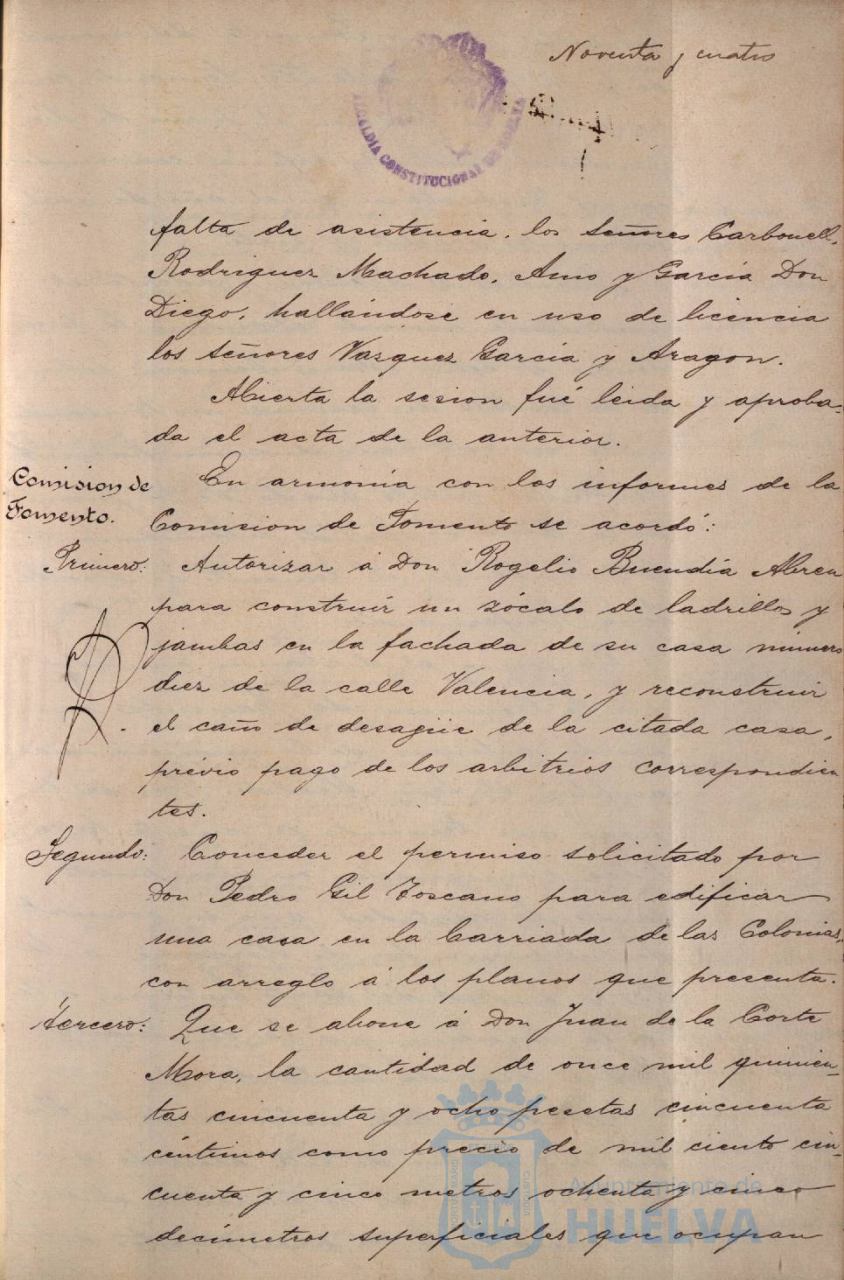 Noventa y cuatro
ALCALDIA CONSTITUCIONAL DE HUELVA
falta de asistencia, los señores Carbonell,
Rodriguez Machado, Amo y Garcia Don
Diego, hallándose en uso de licencia
los señores Vazquez Garcia y Aragon.
Abierta la sesion fué leida y aproba-
da el acta de la anterior.
Comision de
Fomento.
En armonía con los informes de la
Comision de Fomento se acordó:
Primero: Autorizar á Don Rogelio Buendía Abreu
para construir un zócalo de ladrillos y
jambas en la fachada de su casa número
diez de la calle Valencia, y reconstruir
el caño de desagüe de la citada casa,
prévio pago de los arbitrios correspondien
tes.
Segundo: Conceder el permiso solicitado por
Don Pedro Gil Toscano para edificar
una casa en la barriada de las Colonias,
con arreglo á los planos que presenta.
Tercero: Que se abone á Don Juan de la Corte
Mora, la cantidad de once mil quinien-
tas cincuenta y ocho pesetas cincuenta
céntimos como precio de mil ciento cin-
cuenta y cinco metros ochenta y cinco
decímetros superficiales que ocupan
Ayuntamiento de
HUELVA